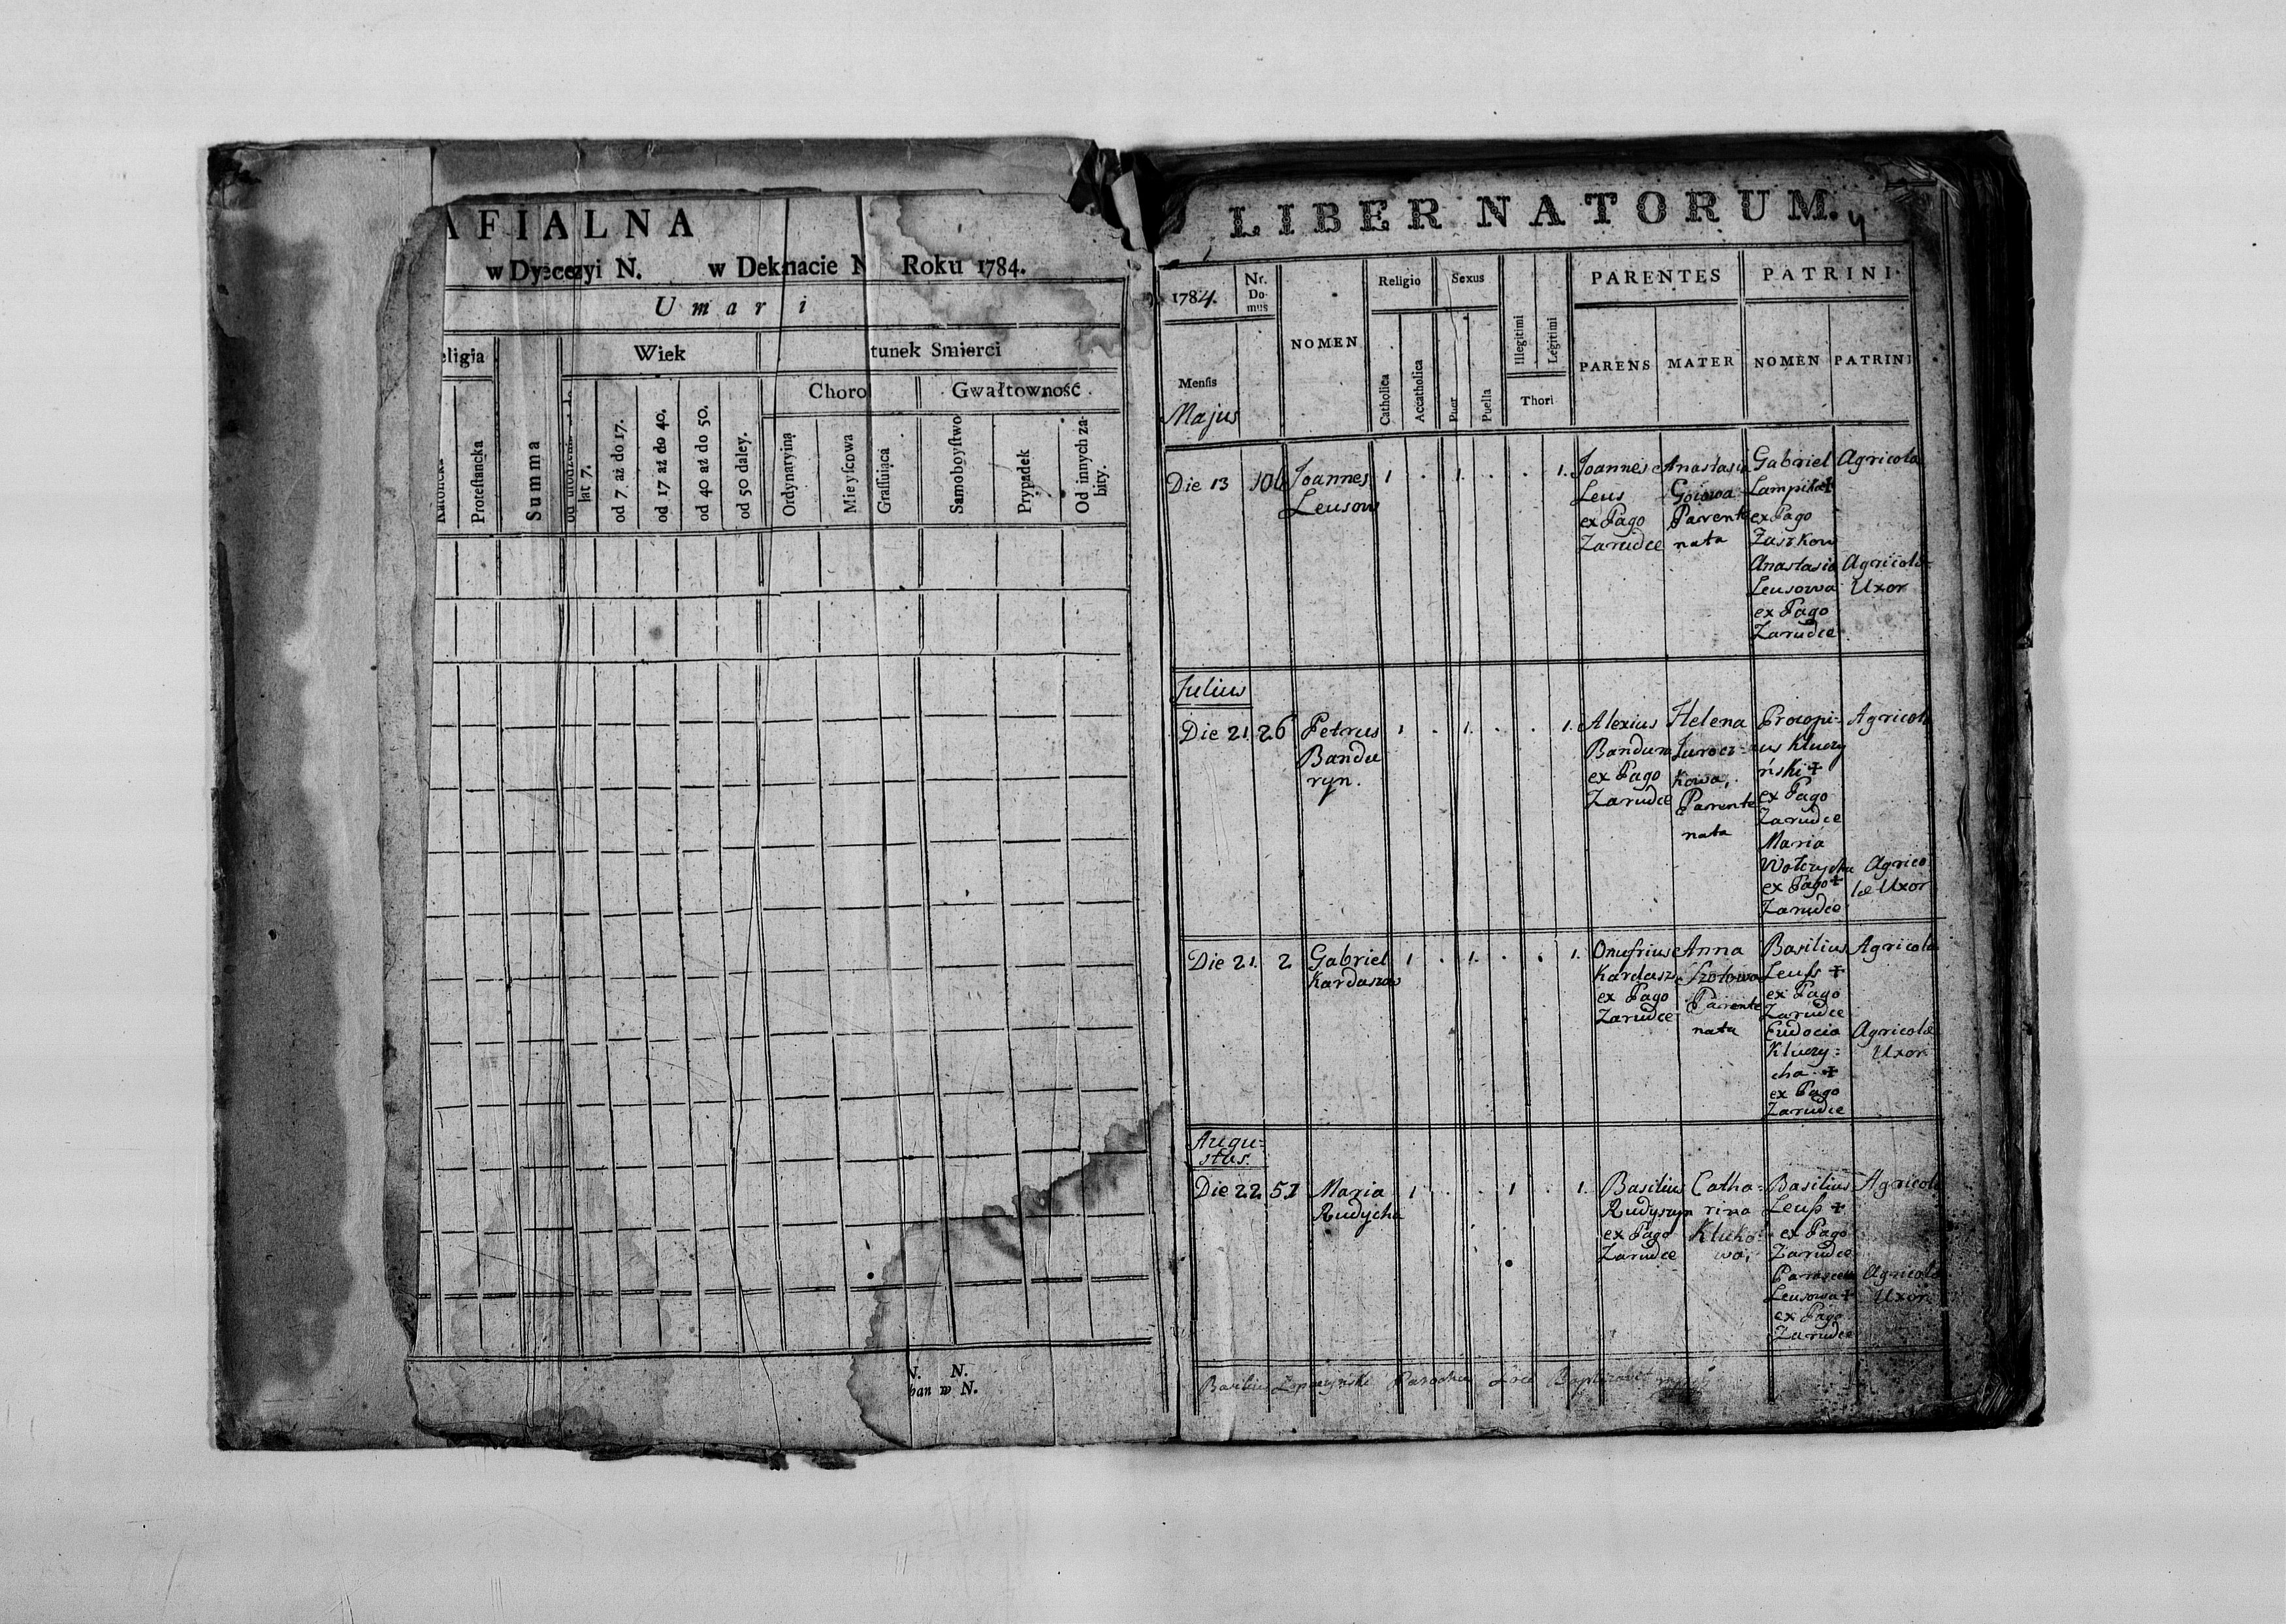 AFIALNA
w Dyecezyi N. w Deknacie N Roku 1784.
Umari
eligia
Wiek
tunek Smierci
Choro
Gwałtowność
Katolicka
Proteſtancka
Summa
lat 7.
od 7 aż do 17.
od 17 aż do 40.
od 40 aż do 50.
od 50 daley.
Ordynaryina
Mieyſcowa
Graſſuiąca
Samoboyſtwo
Prypadek
Od innych za-
bity.
V. N.
ban w N.
LIBER NATORUM.
1784.
Nr.
Do-
mus
NOMEN
Religio
Sexus
PARENTES
PATRINI
Menſis
Majus
Catholica
Accatholica
Puer
Puella
Illegitimi
Legitimi
Thori
PARENS
MATER
NOMEN
PATRINI
Die 13
106
Joannes
Leusow
1 . 1 . . 1.
Joannes
Leus
ex Pago
Zarudce
Anastasia
Parente
nata
Gabriel
ex Pago
Zaszkow
Anastasia
Leusowa
ex Pago
Zarudce
Agricola
Agricolæ
Uxor
Julius
Die 21.
26
Petrus
Bandu
ryn.
1 . 1. . . 1.
Alexius
Bandura
ex Pago
Zarudce
Helena
Jurocz-
kowa,
Parente
nata
Procopi-
us Kluczy
ński +
ex Pago
Zarudce
Maria
Wołczycha
ex Pago +
Zarudce
Agricola
Agrico
læ Uxor
Die 21.
2
Gabriel
Kardaszow
1 . 1. . . 1.
Onufrius
Kardasz
ex Pago
Zarudce
Anna
Parente
nata
Basilius
Leuſs +
ex Pago
Zarudce
Eudocia
Kluczy-
cha +
ex Pago
Zarudce
Agricola
Agricolæ
Uxor
Augu-
stus.
Die 22
51
Maria
Rudycha
1 . . 1 . 1.
Basilius
ex Pago
Zarudce
Catha-
rina
Kluko-
wa,
Basilius
Leuſs +
ex Pago
Zarudce
Leusowa +
ex Pago
Zarudce
Agricola
Agricolæ
Uxor
Basilius
Baptizavit